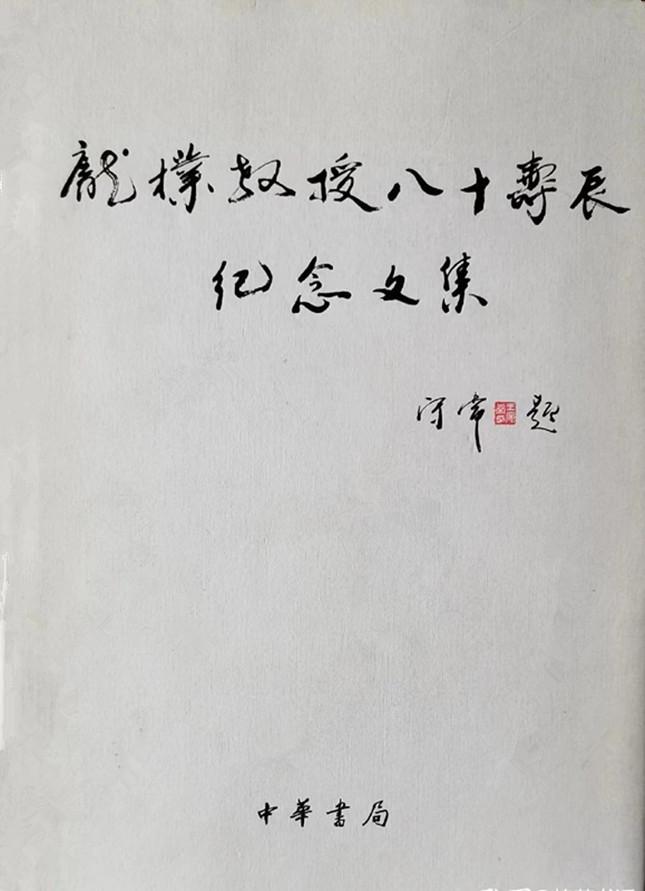 龐樸教授八十壽辰
紀念文集
守常 題
中華書局